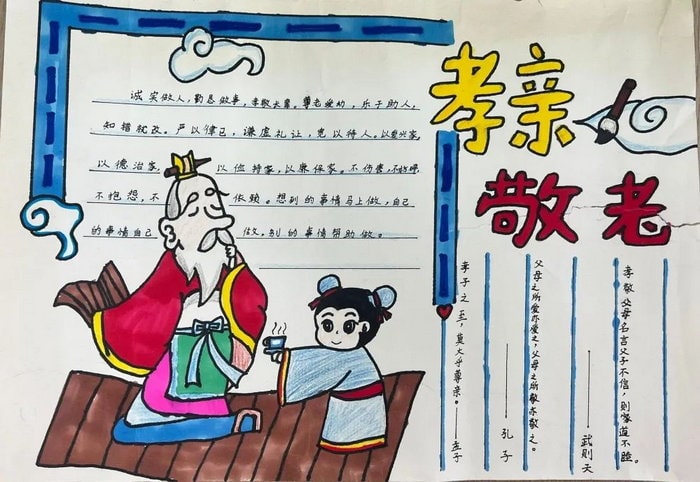 孝亲
敬老
诚实做人,勤恳做事,孝敬长辈。尊老爱幼,乐于助人,
知错就改。严以律己,谦虚礼让,宽以待人。以爱兴家,
以德治家,以俭持家,以廉保家。不伤害,
不抱怨,不依赖。想到的事情马上做,自己
的事情自己做。别的事情帮助做。
孝敬父母名言父子不信,则家道不睦。
——武则天
父母之所爱亦爱之,父母之所敬亦敬之。
——孔子
孝子之至,莫大乎尊亲。——孟子